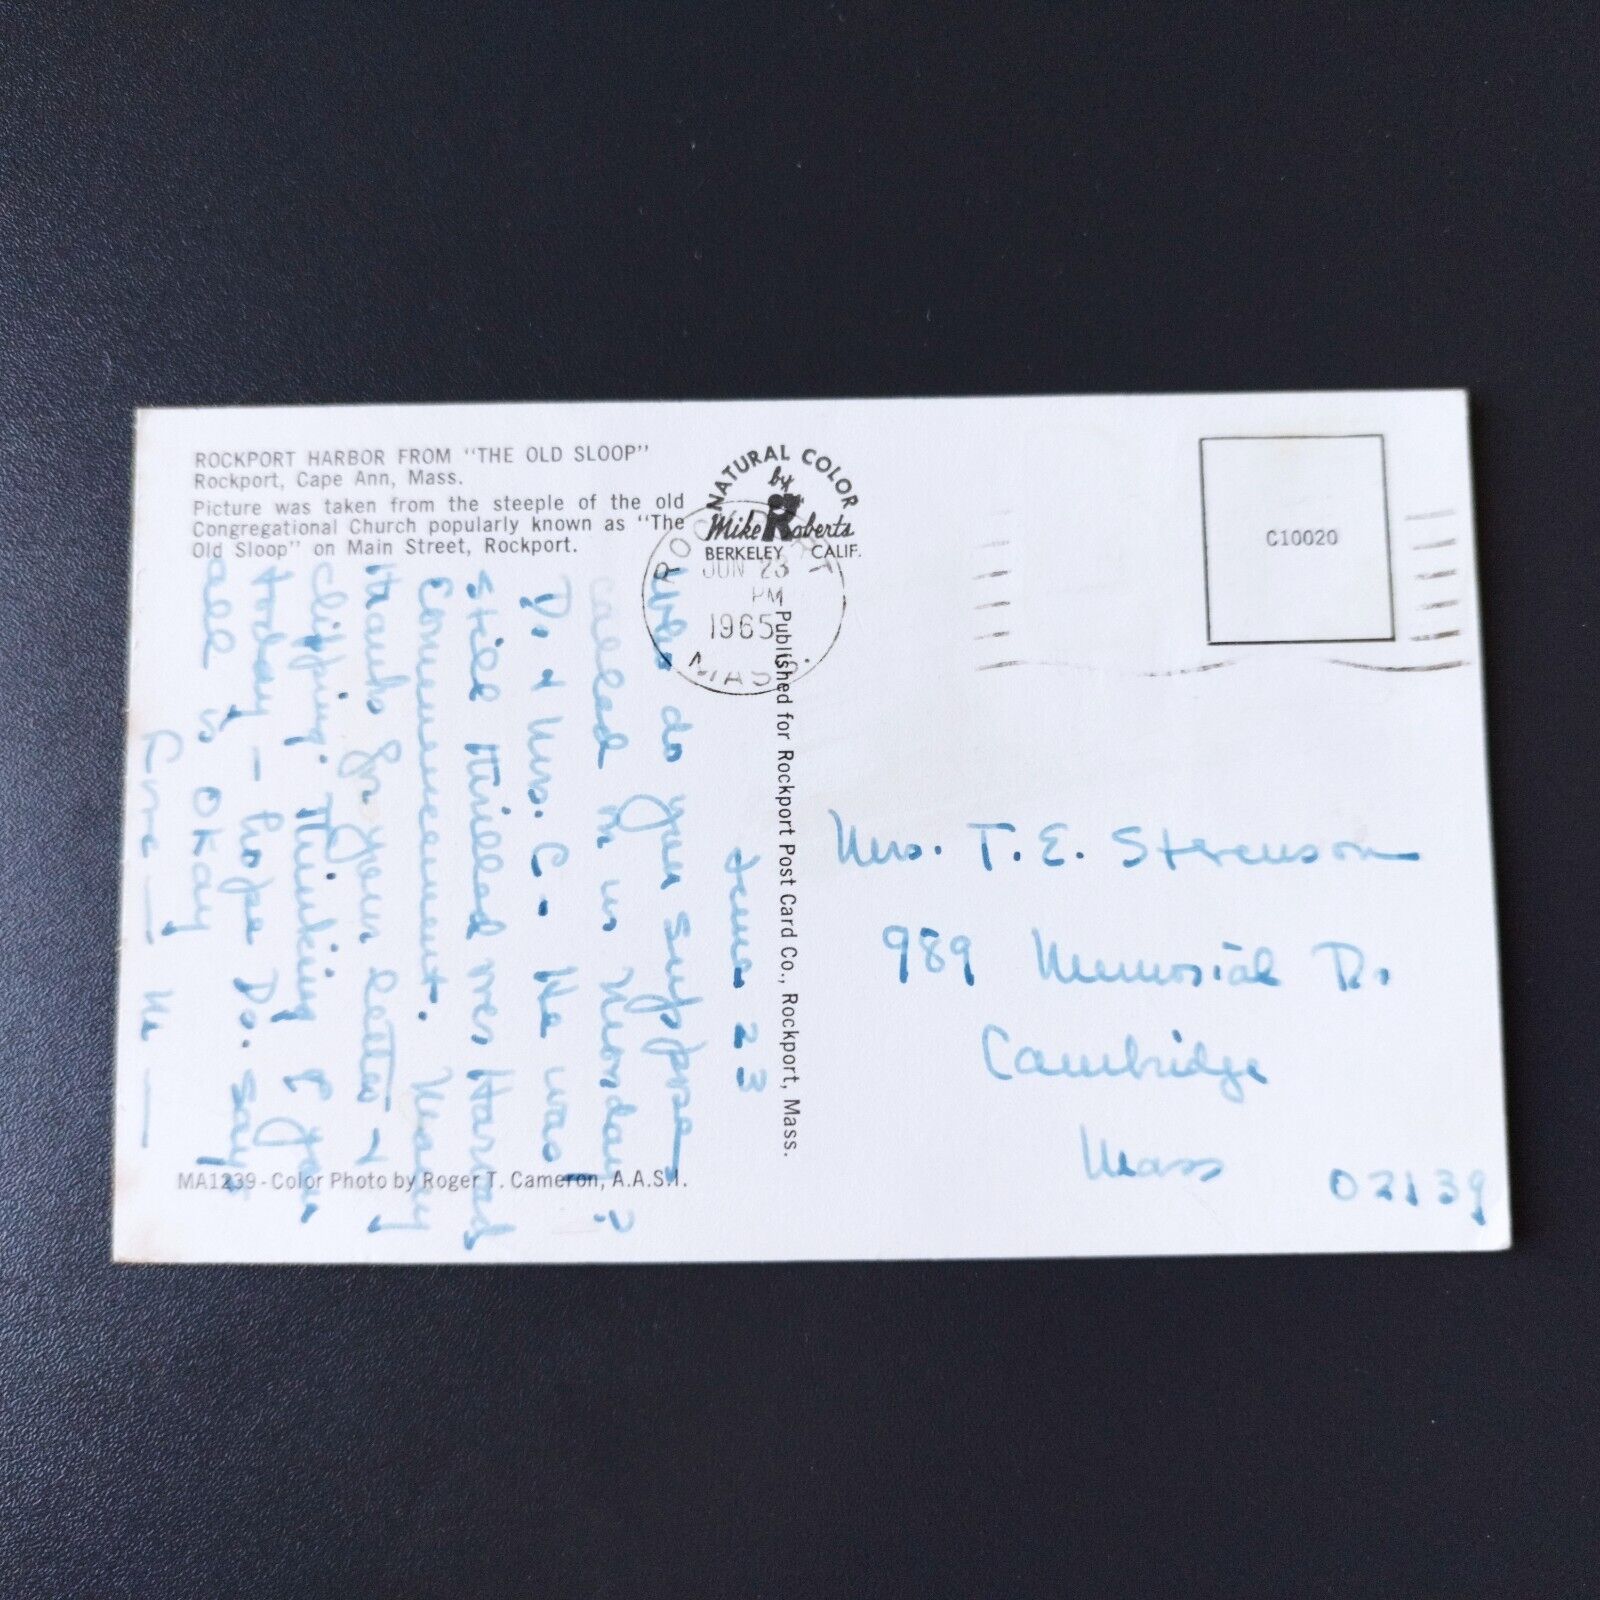 ROCKPORT HARBOR FROM "THE OLD SLOOP"
Rockport, Cape Ann, Mass.
Picture was taken from the steeple of the old
Congregational Church popularly known as "The
Old Sloop" on Main Street, Rockport.
NATURAL COLOR
by
Mike Roberts
BERKELEY CALIF.
ROCKPORT
JUN 23
PM
1965
MASS.
C10020
June 23
Who do you suppose
called on us Monday?
Dr. & Mrs. C. He was
still thrilled over Harvard
Commencement. Many
thanks for your letter &
clipping. Thinking of you
today - hope Dr. says
all is okay
Love - M -
Published for Rockport Post Card Co., Rockport, Mass.
Mrs. T. E. Stevenson
989 Memorial Dr.
Cambridge
Mass 02139
MA1239-Color Photo by Roger T. Cameron, A.A.S.I.